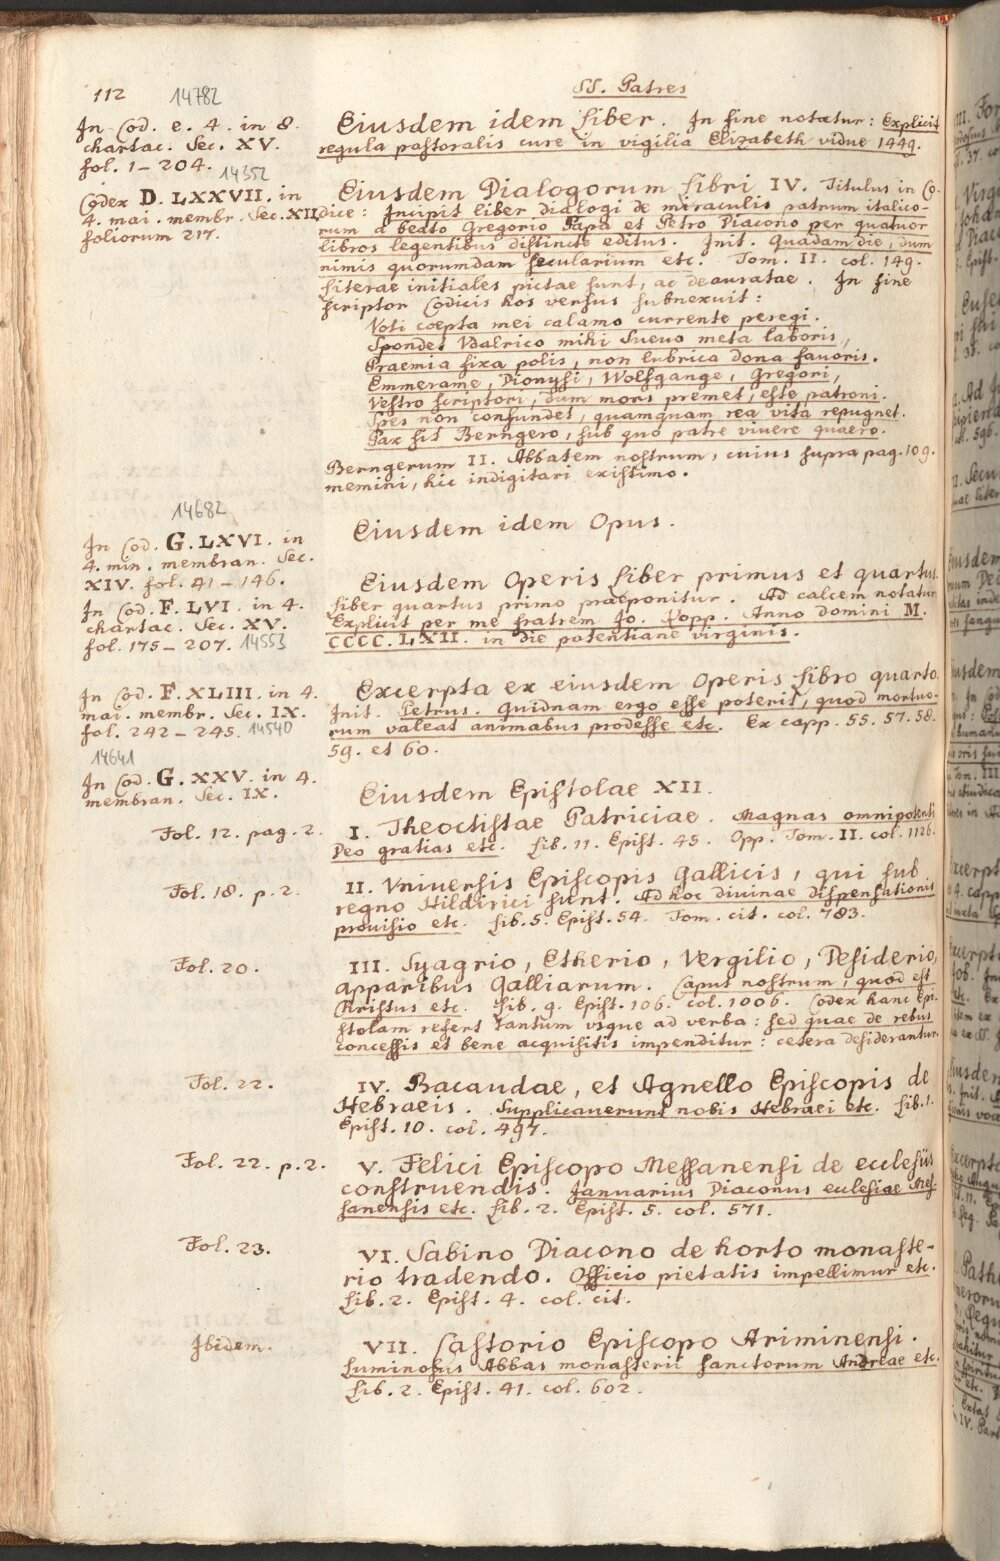 112 14782
SS. Patres
In Cod. e. 4. in 8.
chartac. Sec. XV.
fol. 1-204.
Eiusdem idem Liber. In fine notatur: Explicit
regula pastoralis cure in vigilia Elizabeth vidue 1449.
14352
Codex D. LXXVII. in
4. mai. membr. Sec. XII.
foliorum 217.
Eiusdem Dialogorum Libri IV. Titulus in Co-
dice: Incipit liber dialogi de miraculis patrum italico-
rum a beato Gregorio Papa et Petro Diacono per quatuor
libros legentibus distincte editus. Init. Quadam die, dum
nimis quorumdam secularium etc. Tom. II. col. 149.
Literae initiales pictae sunt, ac deauratae. In fine
scriptor Codicis hos versus subnexuit:
Voti coepta mei calamo currente peregi.
Spondet Vdalrico mihi Sueuo meta laboris,
Praemia fixa polis, non lubrica dona fauoris.
Emmerame, Dionysi, Wolfgange, Gregori,
Vestro scriptori, dum mors premet, este patroni.
Spes non confundet, quamquam rea vita repugnet.
Pax sit Berngero, sub quo patre viuere quaero.
Berngerum II. Abbatem nostrum, cuius supra pag. 109.
memini, hic indigitari existimo.
14682
In Cod. G. LXVI. in
4. min. membran. Sec.
XIV. fol. 41-146.
Eiusdem idem Opus.
In Cod. F. LVI. in 4.
chartac. Sec. XV.
fol. 175-207. 14553
Eiusdem Operis Liber primus et quartus.
Liber quartus primo praeponitur. Ad calcem notatur
Explicit per me fratrem Jo. Popp. Anno domini M.
CCCC. LXII. in die potentiane virginis.
In Cod. F. XLIII. in 4.
mai. membr. Sec. IX.
fol. 242-245. 14540
Excerpta ex eiusdem Operis Libro quarto.
Init. Petrus. Quidnam ergo esse poterit, quod mortuo-
rum valeat animabus prodesse etc. Ex capp. 55. 57. 58.
59. et 60.
14641
In Cod. G. XXV. in 4.
membran. Sec. IX.
Eiusdem Epistolae XII.
Fol. 12. pag. 2.
I. Theoctistae Patriciae. Magnas omnipotenti
Deo gratias etc. Lib. 11. Epist. 45. Opp. Tom. II. col. 1126.
Fol. 18. p. 2.
II. Vniuersis Episcopis Gallicis, qui sub
regno Hildirici sunt. Ad hoc diuinae dispensationis
prouisio etc. Lib. 5. Epist. 54. Tom. cit. col. 783.
Fol. 20.
III. Syagrio, Etherio, Vergilio, Desiderio,
apparibus Galliarum. Caput nostrum, quod est
Christus etc. Lib. 9. Epist. 106. col. 1006. Codex hanc Epi-
stolam refert tantum vsque ad verba: sed quae de rebus
concessis et bene acquisitis impenditur: cetera desiderantur.
Fol. 22.
IV. Bacaudae, et Agnello Episcopis de
Hebraeis. Supplicauerunt nobis Hebraei etc. Lib. 1.
Epist. 10. col. 497.
Fol. 22. p. 2.
V. Felici Episcopo Messanensi de ecclesiis
construendis. Januarius Diaconus ecclesiae Mes-
sanensis etc. Lib. 2. Epist. 5. col. 571.
Fol. 23.
VI. Sabino Diacono de horto monaste-
rio tradendo. Officio pietatis impellimur etc.
Lib. 2. Epist. 4. col. cit.
Ibidem.
VII. Castorio Episcopo Ariminensi.
Luminosus Abbas monasterii sanctorum Andreae etc.
Lib. 2. Epist. 41. col. 602.